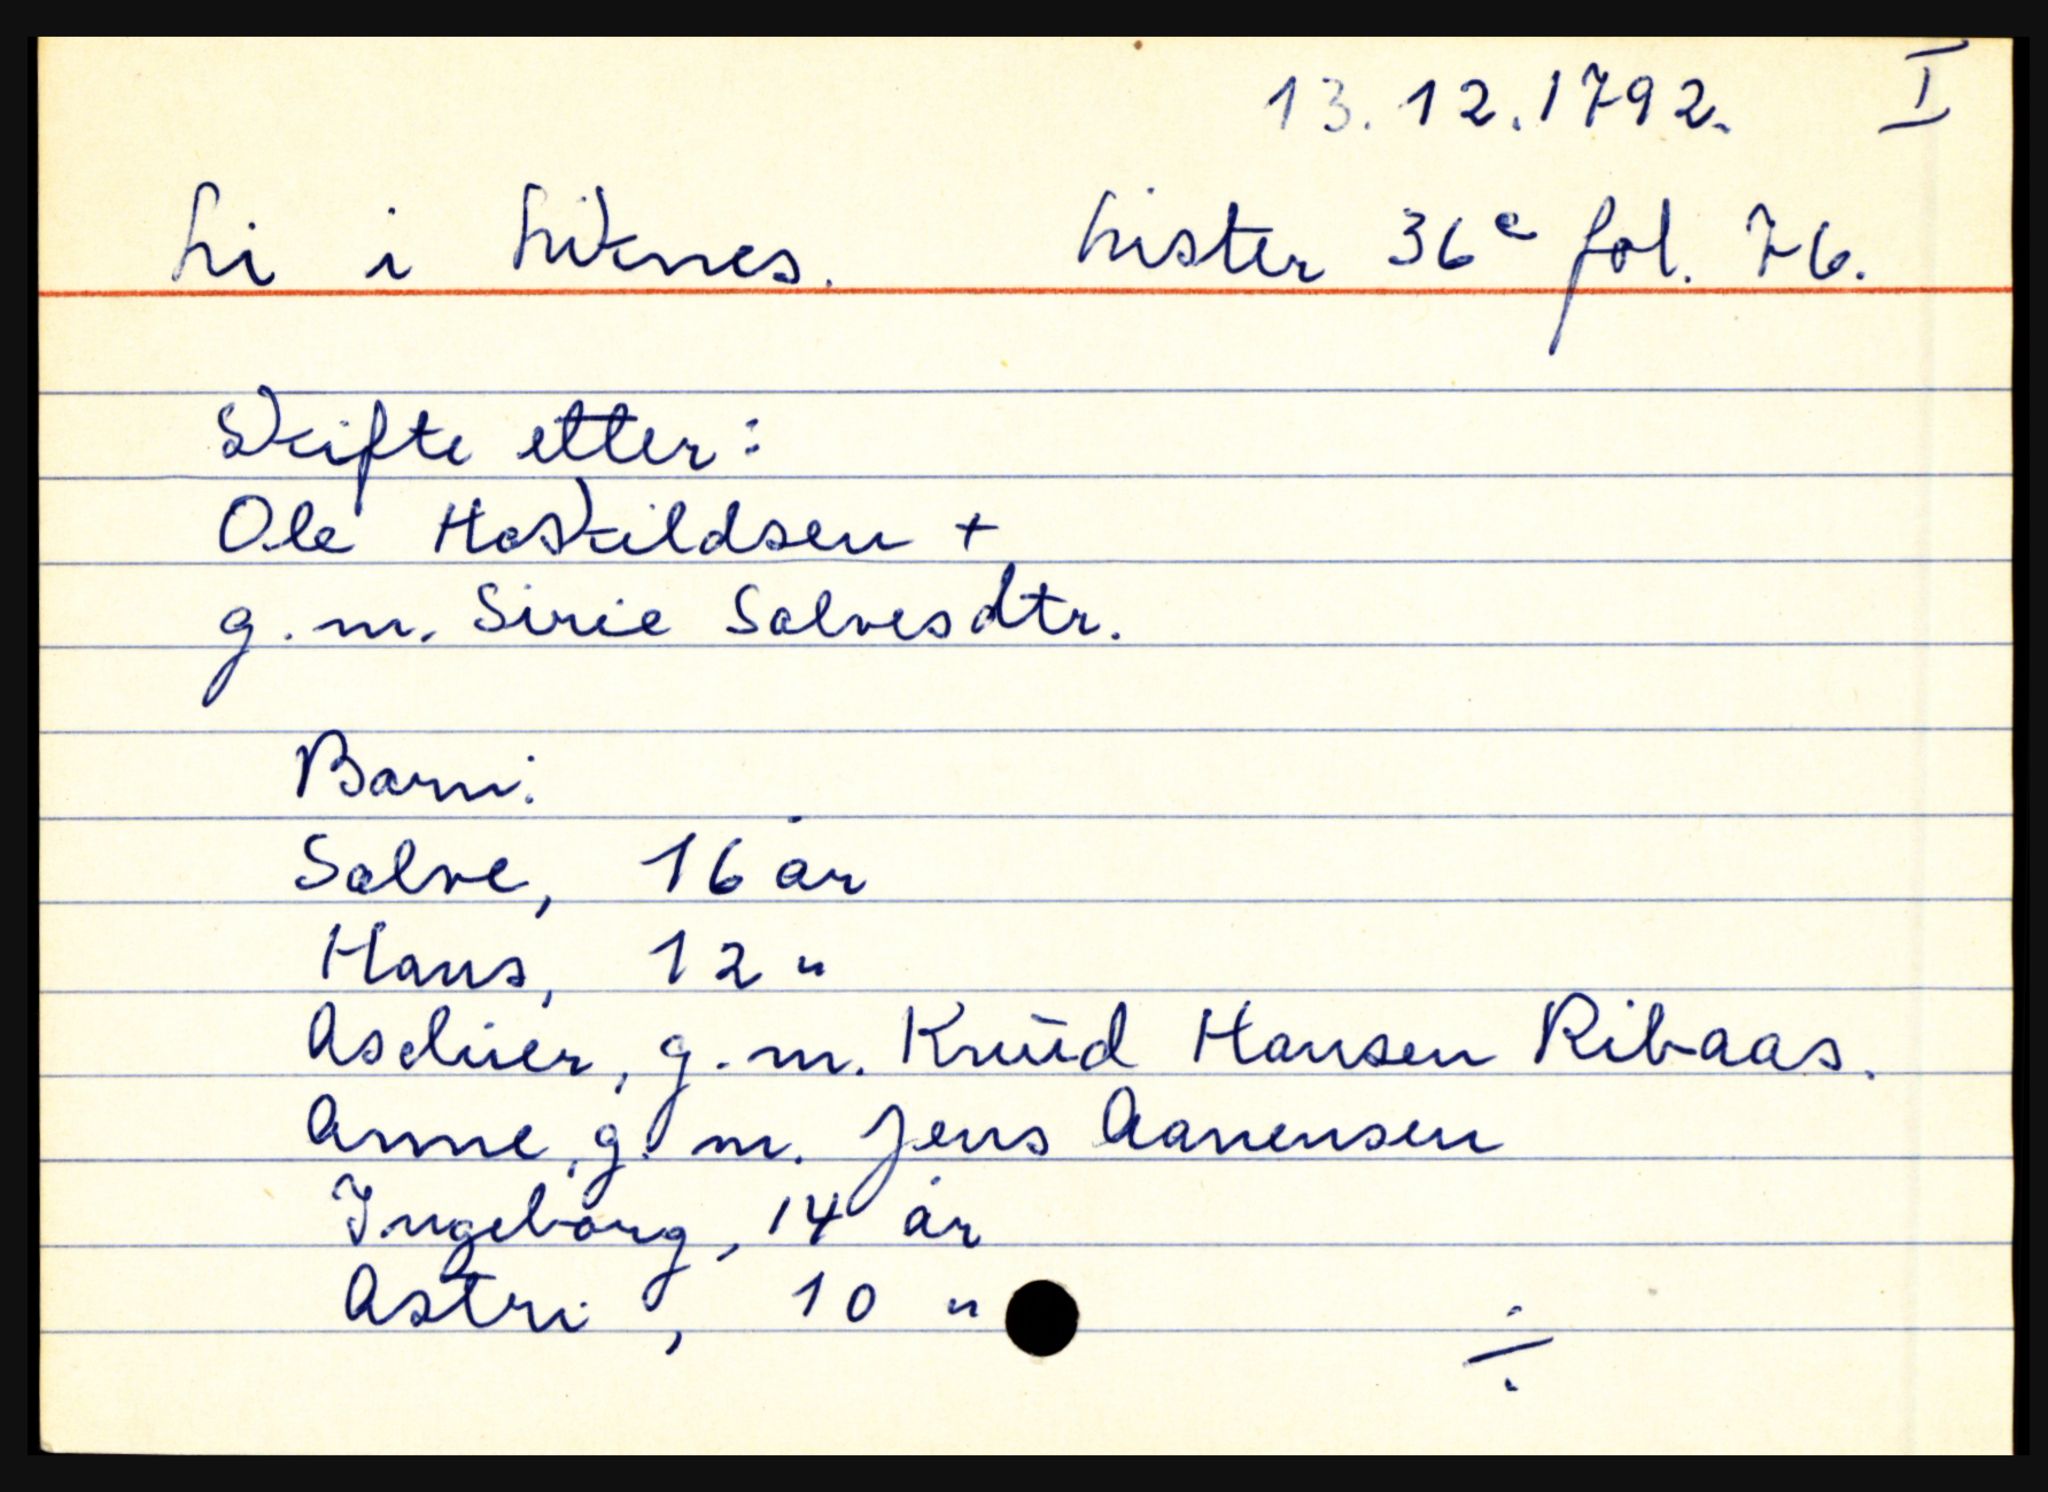 13.12.1792. I
Li i Liknes. Lister 36c fol. 76.
Skifte etter:
Ole Haskildsen +
g.m. Sirie Salvesdtr.
Barn:
Salve, 16 år
Hans, 12 "
g.m. Knud Hansen Ribaas.
Anne, g.m. Jens Aanensen
Ingeborg, 14 år
Astri, 10 "
÷